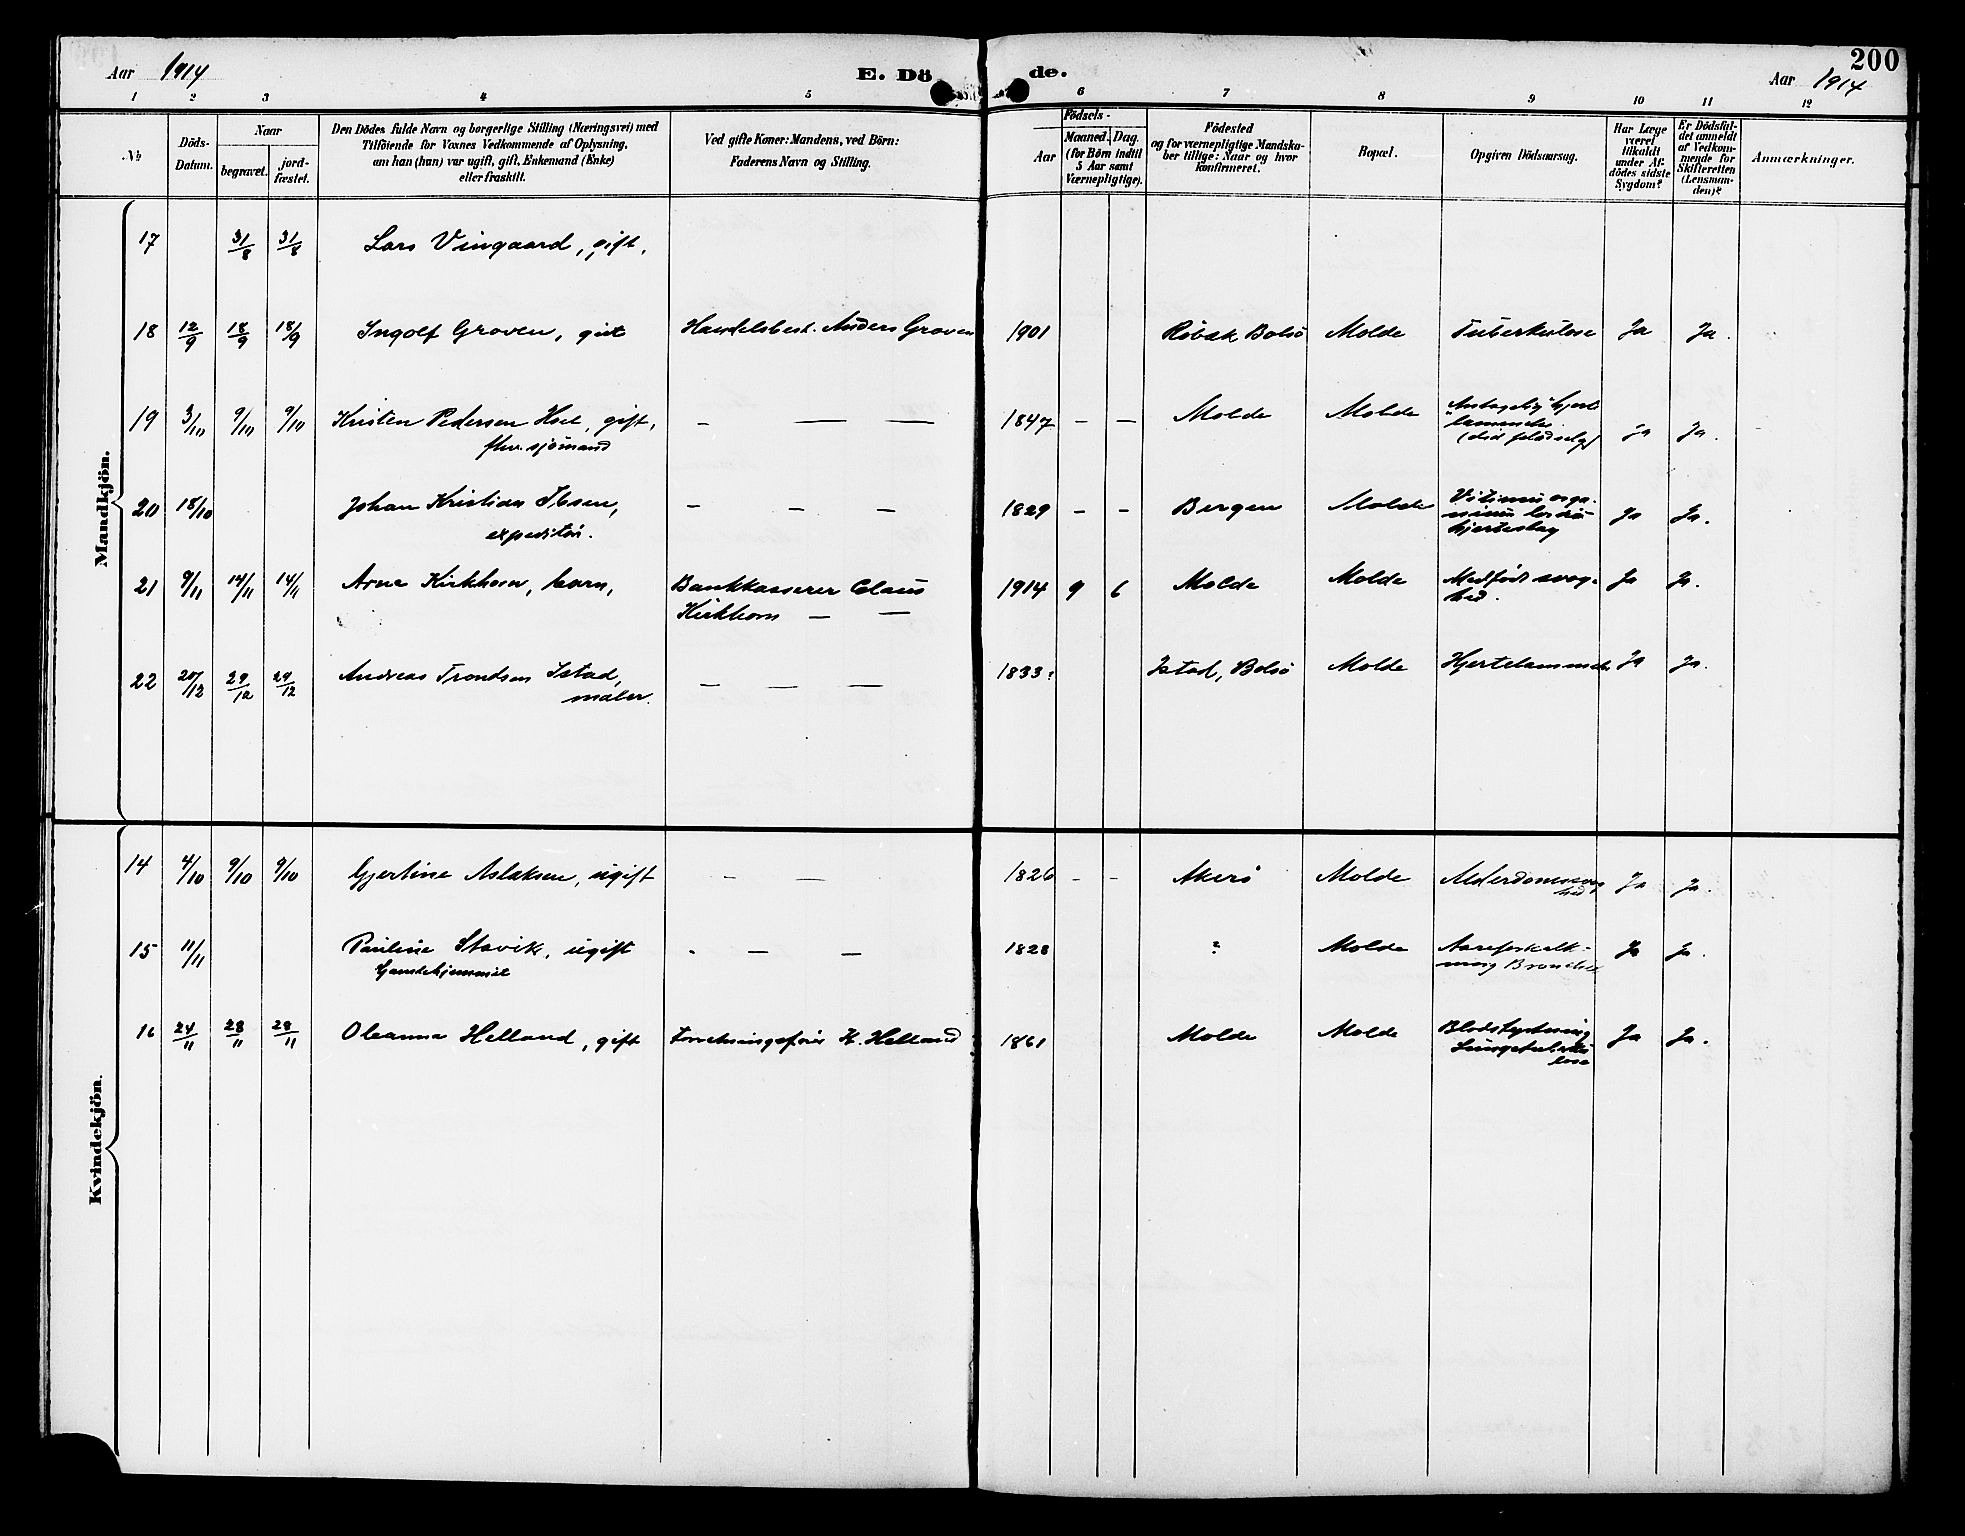 Aar 1914 E. Dö de. 200
Aar 1914
1 2 3 4 5 6 7 8 9 10 11 12
No
Döds-Datum.
Naar
begravet.
jord-fæstet.
Den Dödes fulde Navn og borgerlige Stilling (Næringsvei) med
Tilföiende for Voxnes Vedkommende af Oplysning,
om han (hun) var ugift, gift, Enkemand (Enke)
eller fraskilt.
Ved gifte Koner: Mandens, ved Börn:
Faderens Navn og Stilling.
Födsels-
Aar
Maaned. Dag.
(for Börn indtil
5 Aar samt
Værnepligtige).
Födested
og for værnepligtige Mandska-
ber tillige: Naar og hvor
konfirmeret.
Bopæl.
Opgiven Dödsaarsag.
Har Læge
været
tilkaldt
under Af-
dödes sidste
Sygdom?
Er Dödsfal-
det anmeldt
af Vedkom-
mende for
Skifteretten
(Lensman-
den)?
Anmærkninger.
Mandkjön.
17 31/8 31/8 Lars Vingaard, gift.
18 12/9 18/9 18/9 Ingolf Groven, gut Handelsbest. Anders Groven 1901 Røbæk Bolsø Molde Tuberkulose Ja Ja.
19 3/10 9/10 9/10 Kristen Pedersen Hoel, gift, — — — 1847 — — Molde Molde Antagelig hjerte
fhv. sjømand lammelse Ja Ja.
20 18/10 Johan Kristian Ibsen, — — — 1829 — — Bergen Molde Vitium orga-
expeditør. Ja Ja.
hjerteslag
21 9/11 14/11 14/11 Arne Kirkhorn, barn, Bankkasserer Claus 1914 9 6 Molde Molde Medfødt svag- Ja Ja.
Kirkhorn — — hed.
22 20/12 29/12 29/12 Andreas Trondsen Istad, — — — 1833? Istad, Bolsø Molde Hjertelammelse Ja Ja.
maler.
Kvindekjön.
14 4/10 9/10 9/10 Gjertine Aslaksen, ugift — — 1826 — — Akerø Molde Alderdomssvag Ja Ja.
hed
15 11/11 Pauline Stavik, ugift — — — 1828 ? Molde Aareforkalk- Ja Ja.
Gamlehjemmet ning Bronchit
16 24/11 28/11 28/11 Oleanna Helland, gift Forretningsfører K. Helland 1861 Molde Molde Blodstyrtning Ja Ja.
Lungetuberku
lose